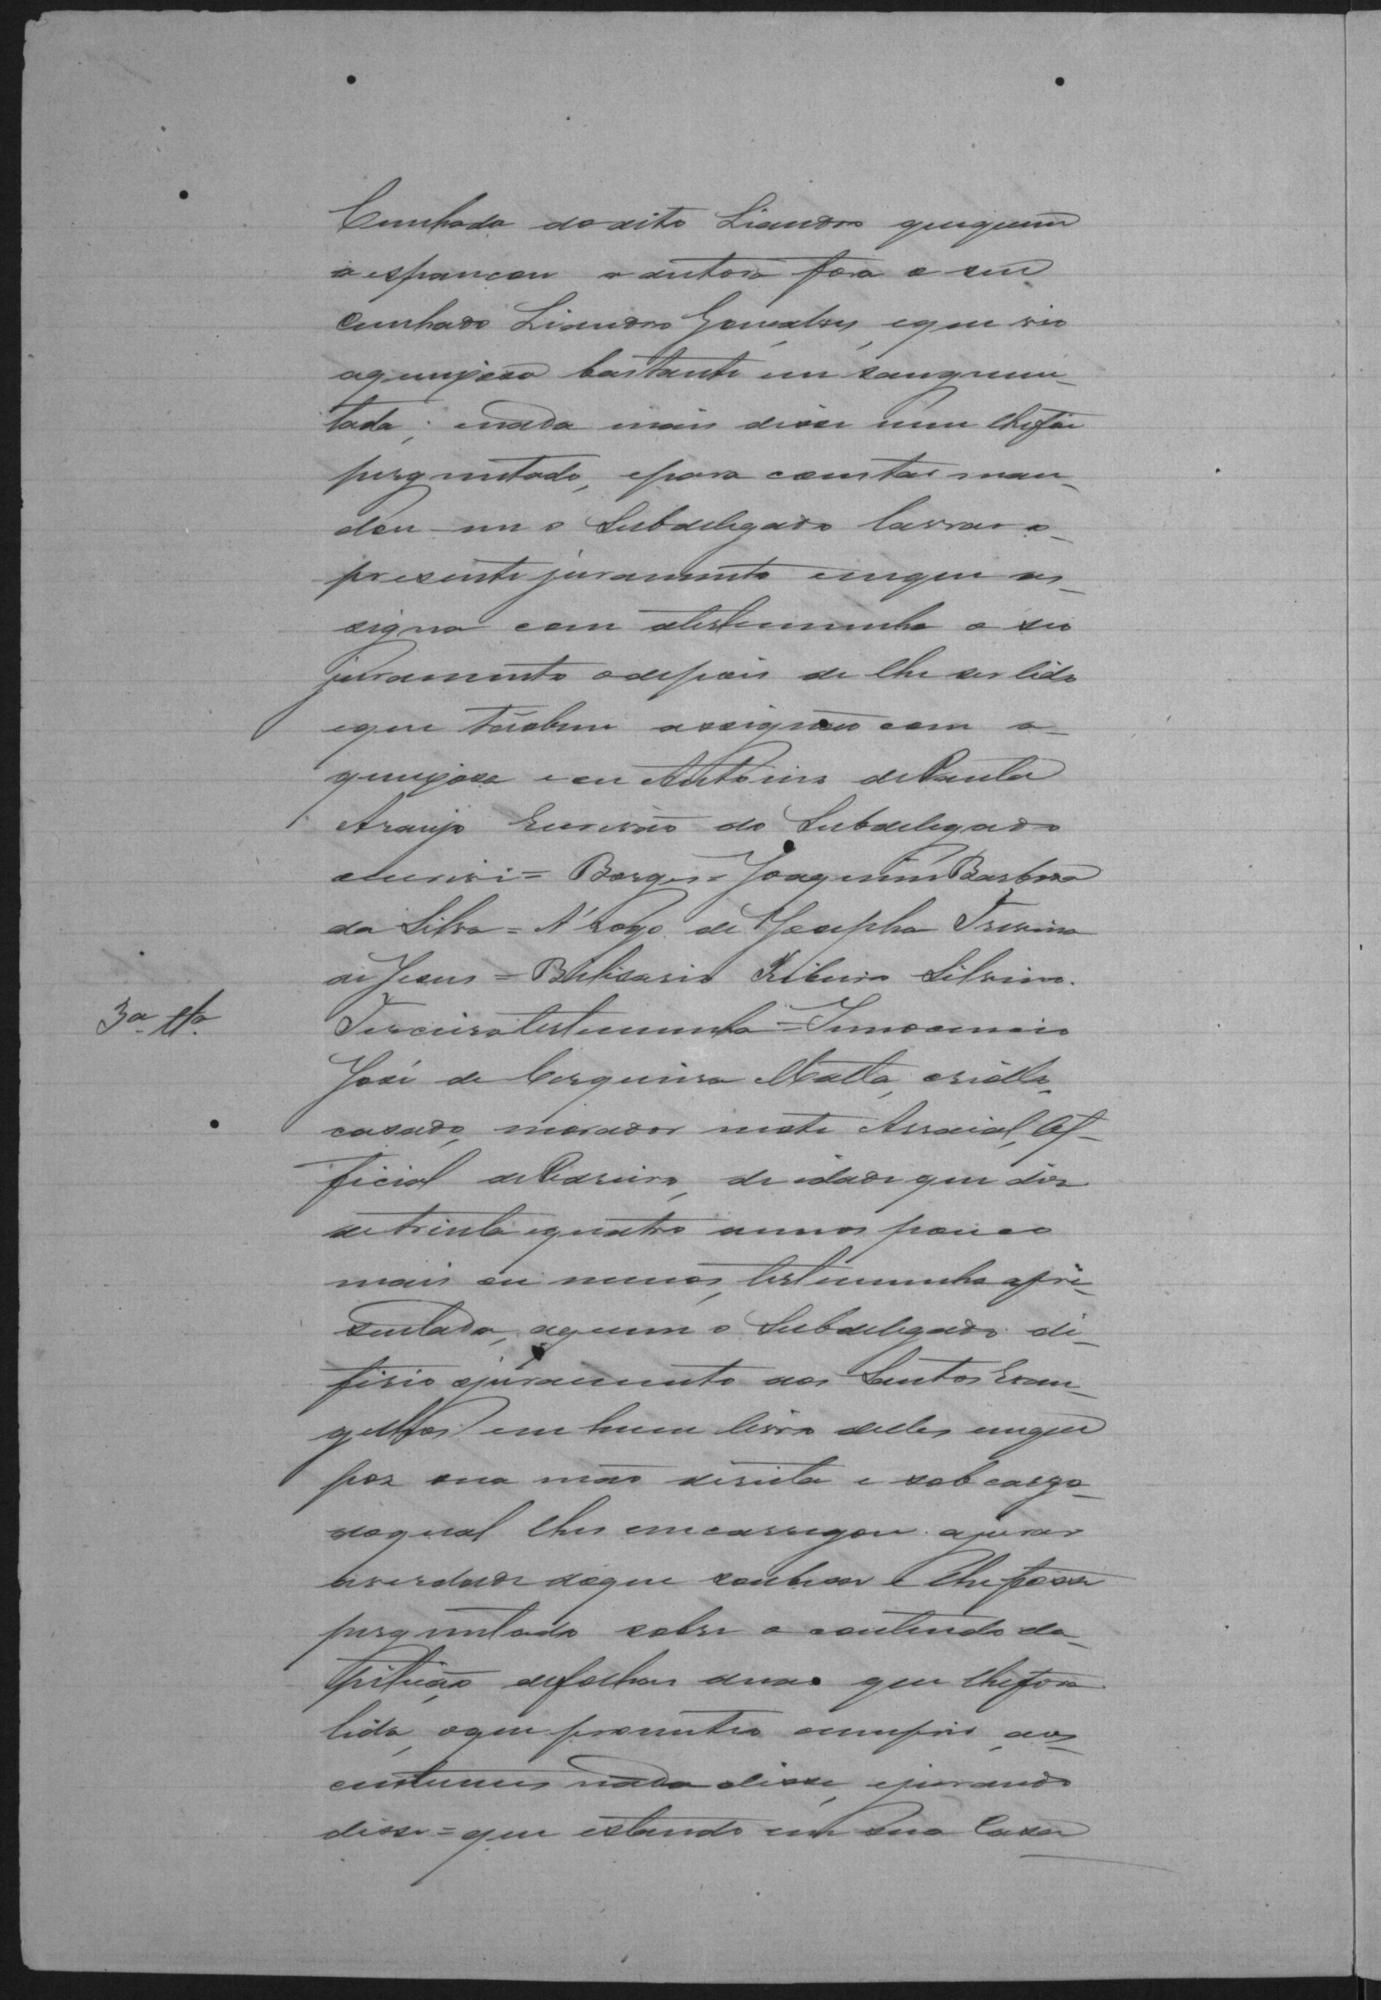 Cunhada do dito Liandro que quem
a espancou a autora fora o seu
Cunhado Liandro Gonçalves, e que vio
a queixosa bastante ensanguen-
tada; e nada mais disse nem lhe foi
perguntado, e para constar man-
dou-me o Subdelegado lavrar o
presente juramento em que as-
signa com a testemunha o seu
juramento e depois de lhe ser lido
e que tãobem assignou com a
queixosa e eu Antonio de Paula
Araujo Escrivão do Subdelegado
o escrevi = Borges = Joaquim Barbosa
da Silva = A' rogo de Josepha
de Jesus = Belisario Ribeiro Silvino.
3ª tª
Terceira testemunha = Innocencio
José de Cerqueira Malta,
casado, morador neste Arraial, Of-
ficial de Pedreiro, de idade que diz
de trinta e quatro annos pouco
mais ou menos, testemunha apre-
sentada, a quem o Subdelegado de-
ferio o juramento aos Santos Evan-
gelhos em hum livro delles em que
poz sua mão direita e sob cargo
do qual lhes encarregou a jurar
a verdade do que soubesse e lhe fosse
perguntado sobre o conteudo da
Petição de folhas duas que lhe fora
lida, o que prometeo cumprir, aos
costumes nada disse, e jurando
disse = que estando em sua Casa